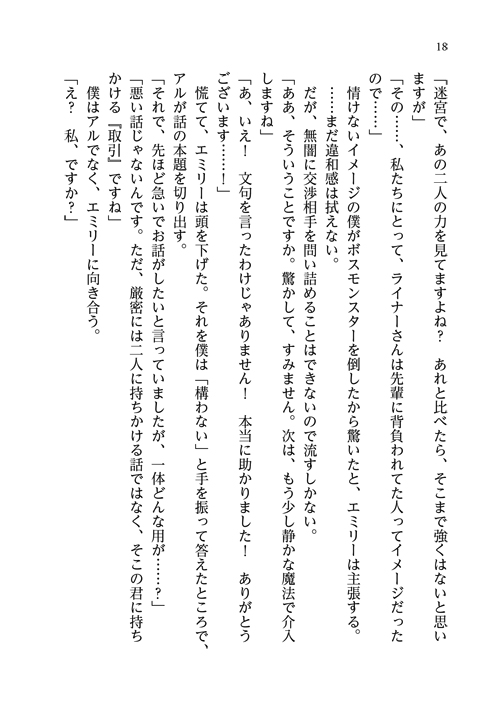 18
「迷宮で、あの二人の力を見てますよね？　あれと比べたら、そこまで強くはないと思い
ますが」
「その……、私たちにとって、ライナーさんは先輩に背負われてた人ってイメージだった
ので……」
　情けないイメージの僕がボスモンスターを倒したから驚いたと、エミリーは主張する。
　……まだ違和感は拭えない。
　だが、無闇に交渉相手を問い詰めることはできないので流すしかない。
「ああ、そういうことですか。驚かして、すみません。次は、もう少し静かな魔法で介入
しますね」
「あ、いえ！　文句を言ったわけじゃありません！　本当に助かりました！　ありがとう
ございます……！」
　慌てて、エミリーは頭を下げた。それを僕は「構わない」と手を振って答えたところで、
アルが話の本題を切り出す。
「それで、先ほど急いでお話がしたいと言っていましたが、一体どんな用が……？」
「悪い話じゃないんです。ただ、厳密には二人に持ちかける話ではなく、そこの君に持ち
かける『取引』ですね」
　僕はアルでなく、エミリーに向き合う。
「え？　私、ですか？」